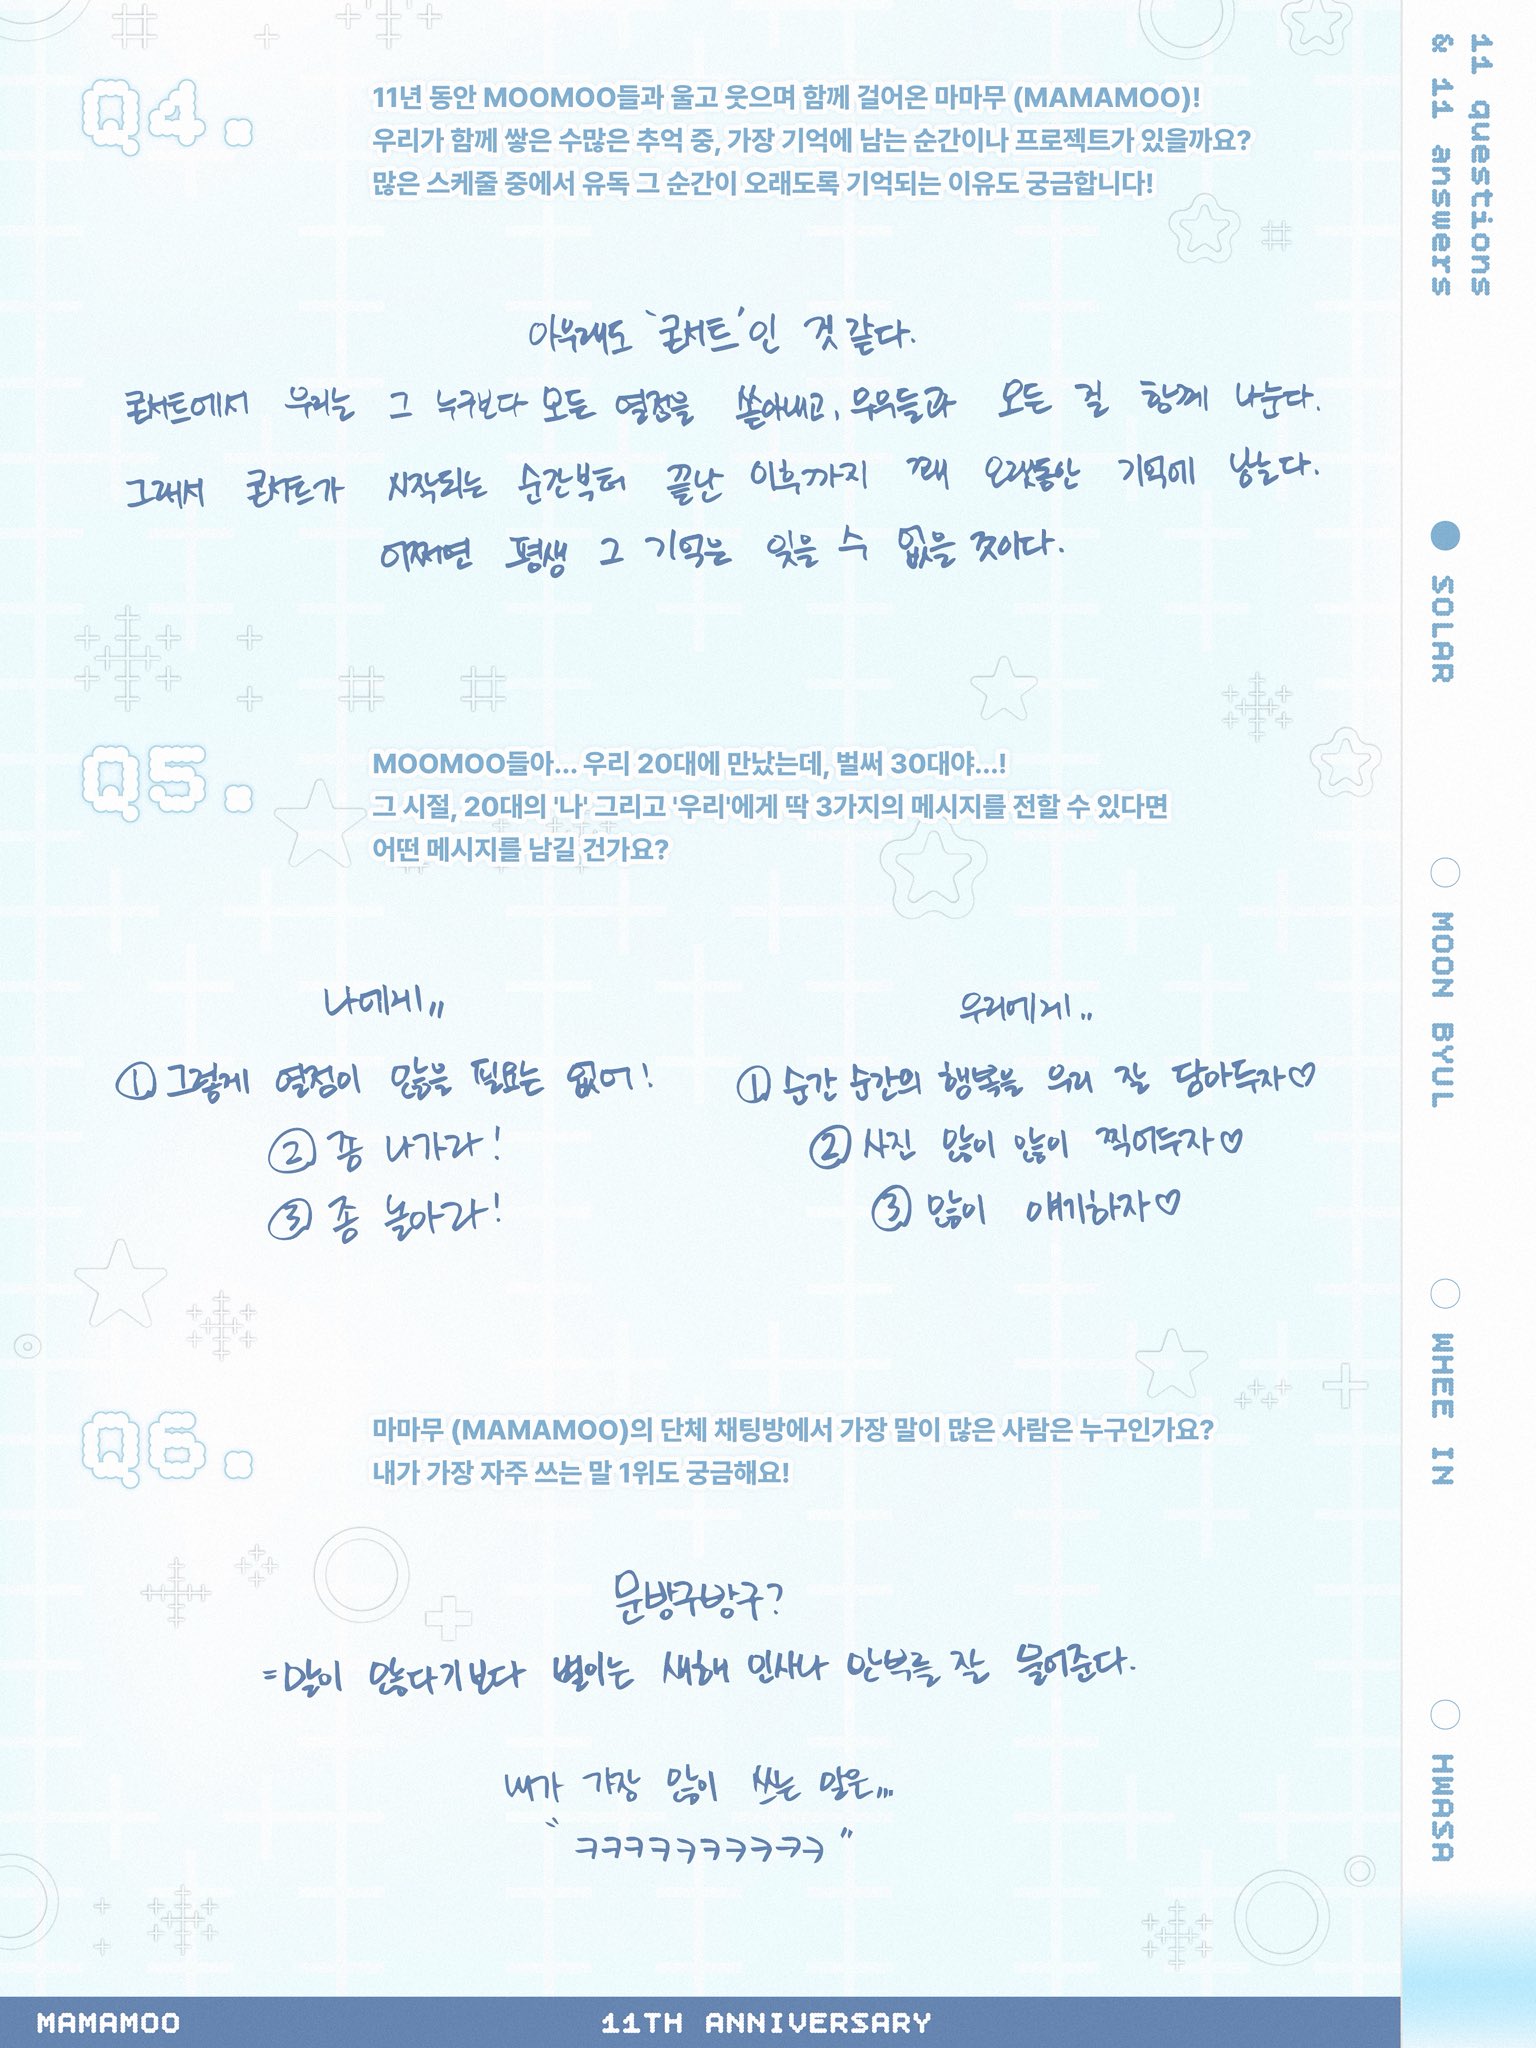 11 questions
& 11 answers
SOLAR
MOON BYUL
WHEE IN
HWASA
Q4.
11년 동안 MOOMOO들과 울고 웃으며 함께 걸어온 마마무 (MAMAMOO)!
우리가 함께 쌓은 수많은 추억 중, 가장 기억에 남는 순간이나 프로젝트가 있을까요?
많은 스케줄 중에서 유독 그 순간이 오래도록 기억되는 이유도 궁금합니다!
아무래도 '콘서트'인 것 같다.
콘서트에서 우리는 그 누구보다 모든 열정을 쏟아내고, 무무들과 모든 걸 함께 나눈다.
그래서 콘서트가 시작되는 순간부터 끝난 이후까지 꽤 오랫동안 기억에 남는다.
어쩌면 평생 그 기억은 잊을 수 없을 것이다.
Q5.
MOOMOO들아... 우리 20대에 만났는데, 벌써 30대야...!
그 시절, 20대의 '나' 그리고 '우리'에게 딱 3가지의 메시지를 전할 수 있다면
어떤 메시지를 남길 건가요?
나에게,,
① 그렇게 열정이 많을 필요는 없어!
② 좀 나가라!
③ 좀 놀아라!
우리에게..
① 순간 순간의 행복을 우리 잘 담아두자♡
② 사진 많이 많이 찍어두자♡
③ 많이 얘기하자♡
Q6.
마마무 (MAMAMOO)의 단체 채팅방에서 가장 말이 많은 사람은 누구인가요?
내가 가장 자주 쓰는 말 1위도 궁금해요!
문방구방구?
=말이 많다기보다 별이는 새해 인사나 안부를 잘 물어준다.
내가 가장 많이 쓰는 말은,,,
"ㅋㅋㅋㅋㅋㅋㅋㅋㅋㅋ"
MAMAMOO
11TH ANNIVERSARY